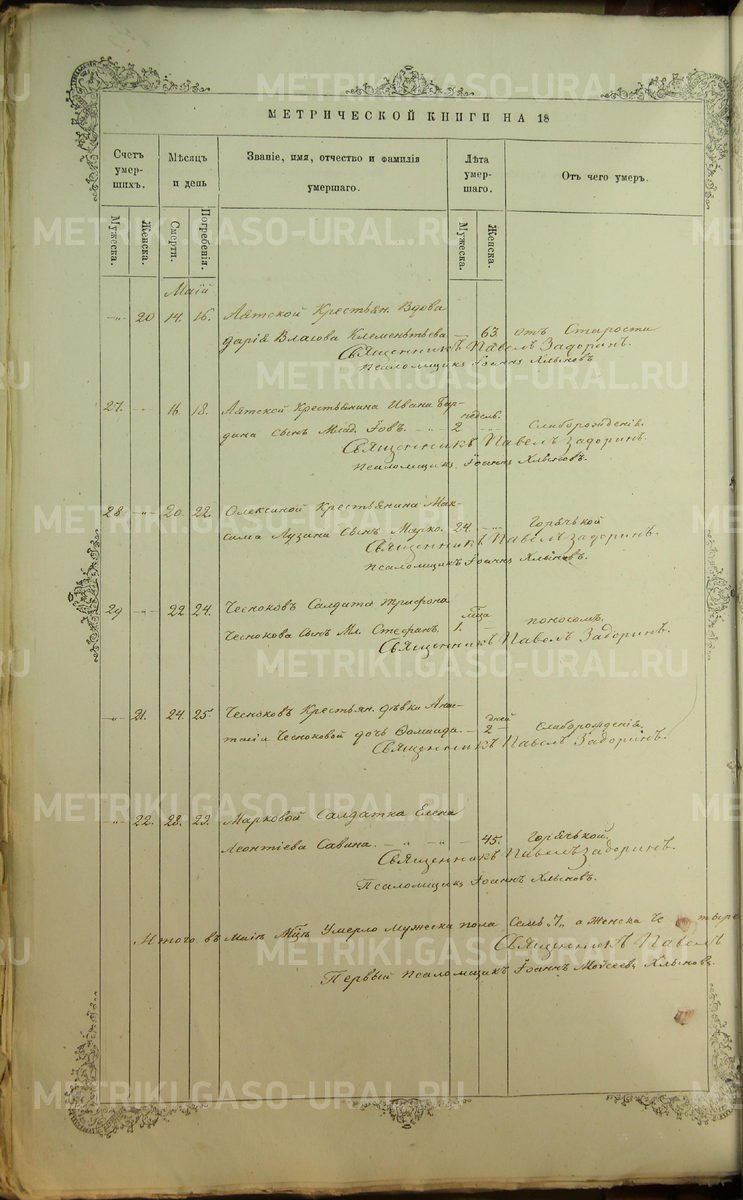 МЕТРИЧЕСКОЙ КНИГИ НА 18
Счетъ умерших.
Мѣсяцъ и день
Званіе, имя, отчество и фамилія умершаго.
Лѣта умершаго.
Отъ чего умеръ.
Мужеска.
Женска.
Смерти.
Погребенія.
Мужеска.
Женска.
Маій
20 14. 16. Аятской Крестьян. Вдова
дарія Власова Клементьева 63. отъ Старости
Священникъ Павелъ Задоринъ.
Псаломщикъ Іоаннъ Хлыновъ
27. 16. 18. Аятской Крестьянина Ивана
дина сынъ Млад. Іовъ. недѣль. 2 Слаборожденія.
Священникъ Павелъ Задоринъ.
Псаломщикъ Іоаннъ Хлыновъ.
28 20. 22. Крестьянина Мак-
сима Лузина Сынъ Марко. 24. Горячкой
Священникъ Павелъ Задоринъ.
Псаломщикъ Іоаннъ Хлыновъ.
29 22 24. Чесноковъ Салдата Трифона
Чеснокова Сынъ Мл. Стефанъ. мѣца 1. поносомъ.
Священникъ Павелъ Задоринъ.
21. 24. 25. Чесноковъ Крестьян. дѣвки
Чесноковой дочь Домнида. дней 2 Слаборожденія.
Священникъ Павелъ Задоринъ.
22. 28. 29. Марковой Салдатка Елена
Леонтіева Савина. 45. Горячькой.
Священникъ Павелъ Задоринъ.
Псаломщикъ Іоаннъ Хлыновъ.
Итого въ маіи Мцѣ Умерло мужеска пола Семь „7„ а Женска Четыре
Священникъ Павелъ
Первый псаломщикъ Іоаннъ Моѵсеевъ Хлыновъ.
METRIKI.GASO-URAL.RU